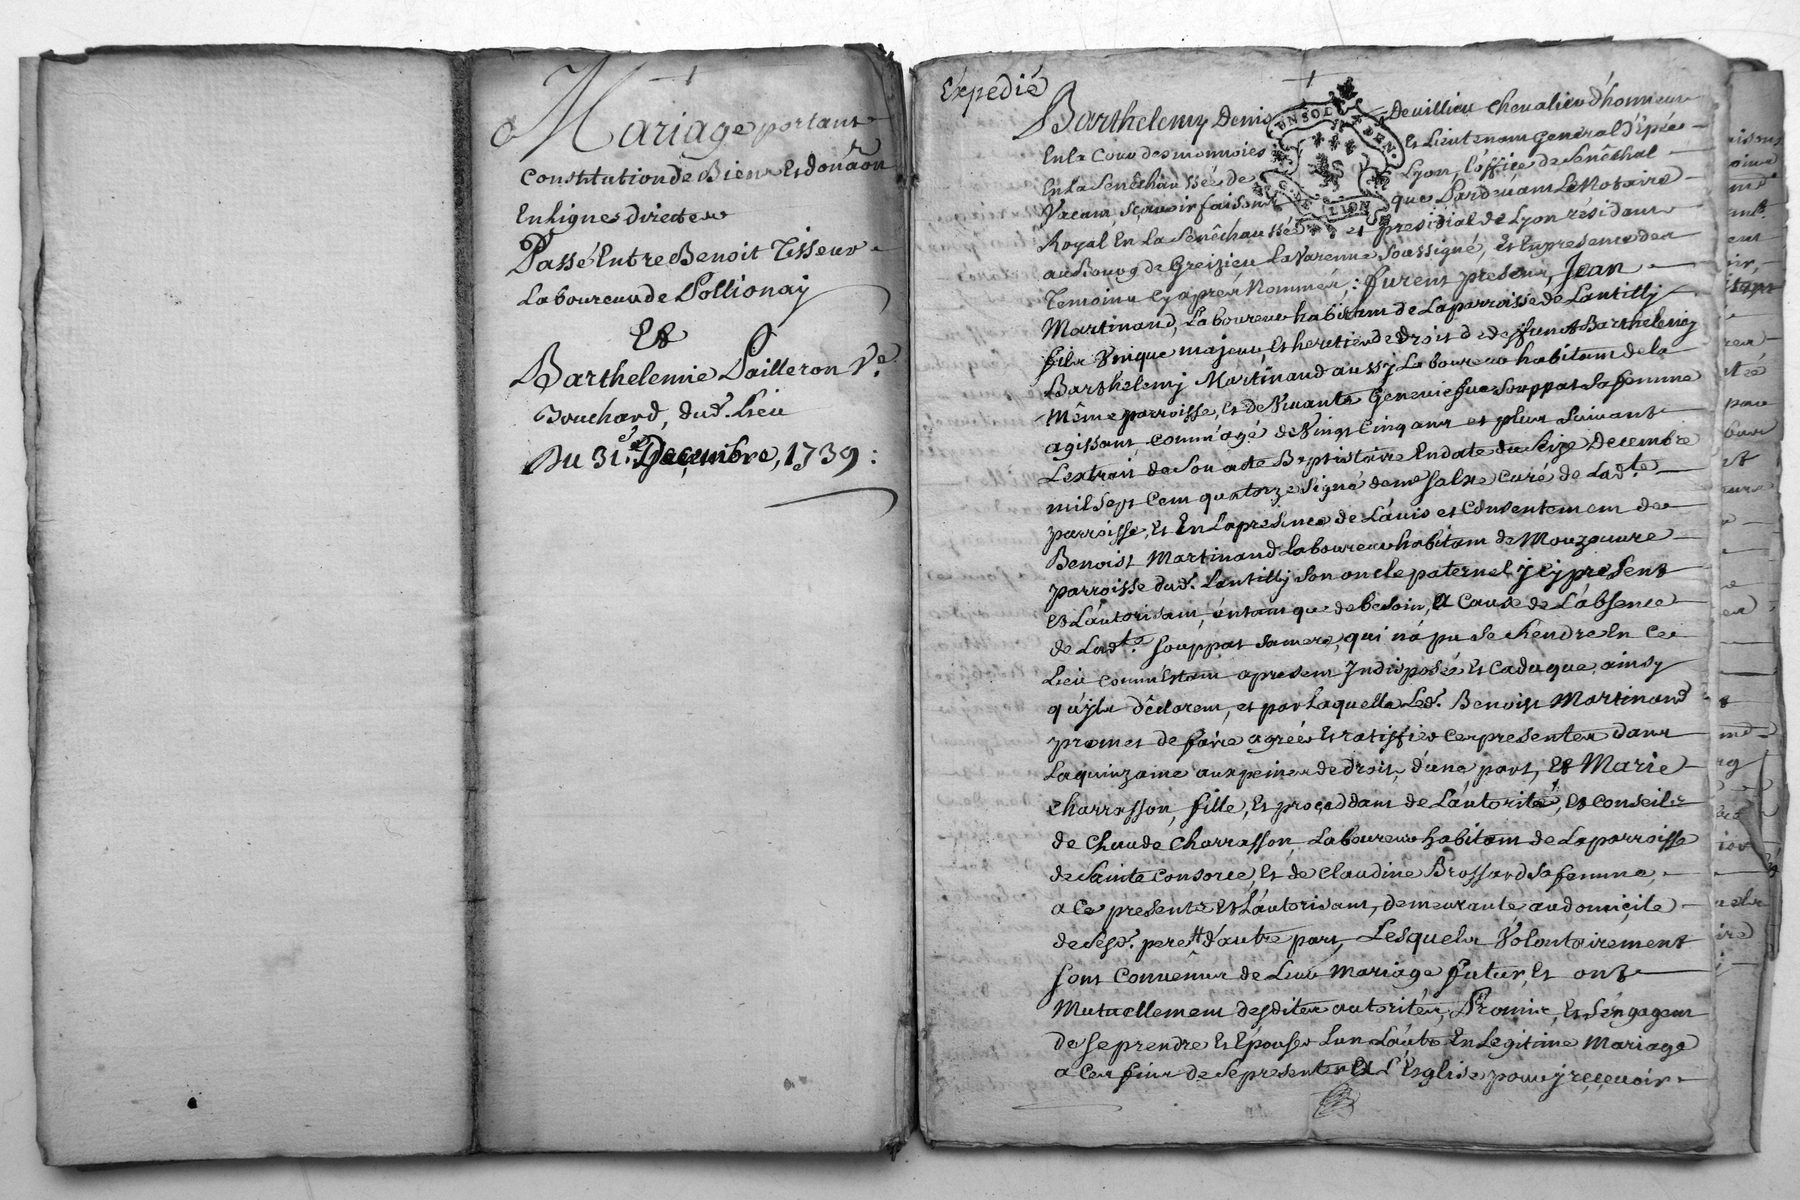 Mariage portant
Constitution de Biens Et donãon
En Ligne directe
Passé Entre Benoit Tisseur
Laboureur de Pollionay
Et
Barthelemie Pailleron Ve.
Bouchard, dud. Lieu
Du 31e. Decembre, 1739:
Expedié
Barthelemy Denis Deuillieu Cheualier d'honneur
En la Cour des monnoies Et Lieutenant General d'Epée
En la Senêchaussée de Lyon, L'office de Senêchal
Vacant Sçauoir faisons que Pardeuant Le Notaire
Royal En La Senêchaussée et presidial de Lyon résidant
au Bourg de Greizieu La Varenne Soussigné, Et En presence des
Temoins Cy apres Nommés: furent presens, Jean
Martinand, Laboureur habitant de La parroisse de Lantilly
fils Vnique majeur, Et heritier de droit de deffunct Barthelemy
Barthelemy Martinand aussy Laboureur habitant de la
Même parroisse, et de Viuante Geneviefue Souppat Sa femme
agissant comm'agé de Vingt Cinq ans et plus Suiuant
L'extrait de Son acte Baptistaire En date du Seize Decembre
mil Sept Cent quatorze Signé deme Salve Curé de Lad.te
parroisse, Et En La presence de L'auis et Consentement de
Benoist Martinand Laboureur habitant de Mouzouure
parroisse dud. Lentilly Son oncle paternel Jcy present
Et L'autorisant, entant que de besoin, A Cause de L'absence
de Lad.te Souppat Sa mere, qui n'a pu Se Rendre En Ce
Lieu Comm'Estant a present Indisposée Et Caduque, ainsy
qu'jls déclarent, et par Laquelle Led. Benoist Martinand
promet de faire agréer Et ratiffier Ces presentes dans
La quinzaine aux peines de droit, d'une part, Et Marie
Charrasson, fille, Et procaddant de L'autorité, Et Conseil
de Claude Charrasson, Laboureur habitant de La parroisse
de Sainte Consorce, Et de Claudine Brossard Sa femme,
a Ce presents Et L'autorisant, demeurante au domicile
de Sesd. pere d'autre part, Lesquels Volontairement
Sont Conuenus de Leur Mariage futur, Et ont
Mutuellement desdites autorités, Promis, Et S'engagent
de Se prendre Et Epouser L'un L'autre En Legitime Mariage
a Ces fins de Se presenter En L'Eglise pour y reçeuoir
UN SOL
DEN.
LION